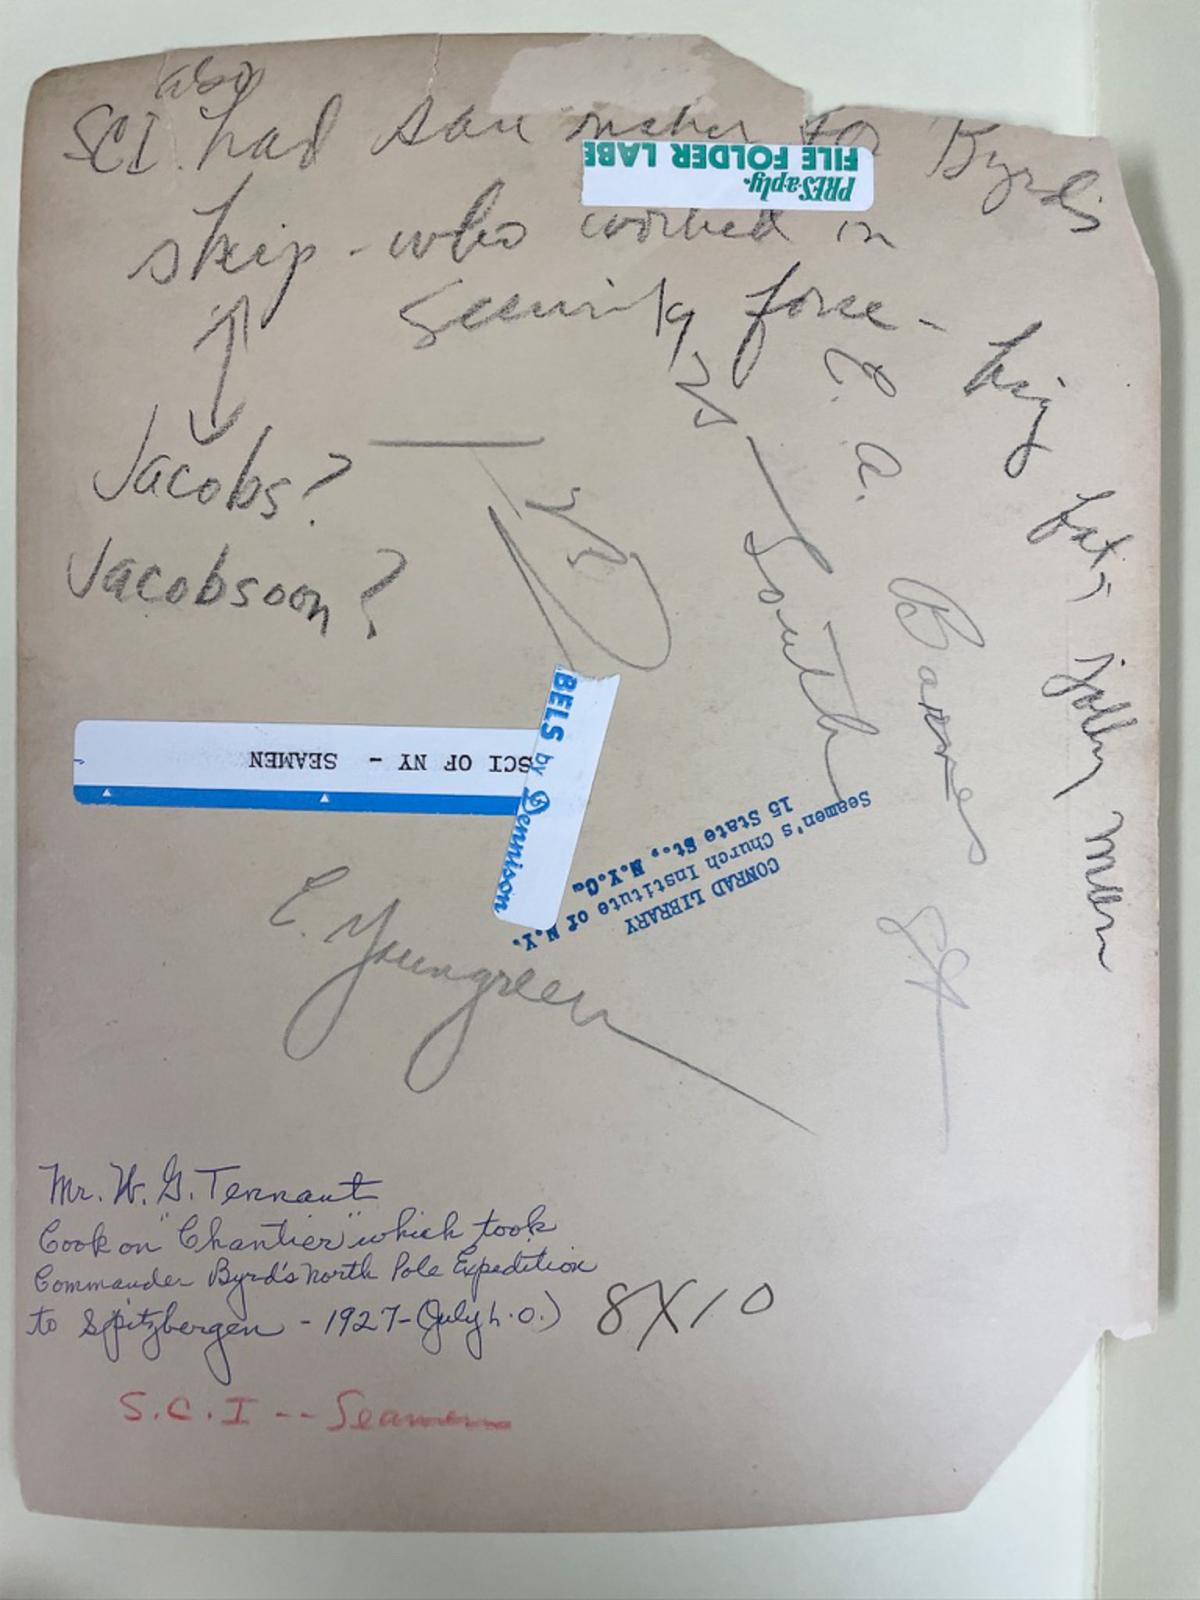 also
SCI had sail maker to Byrd's
ship - who worked in
security force - big fat, jolly man
PRES aply.
FILE FOLDER LABE
Jacobs?
Jacobsoon?
E. A. Barnes
South
BELS by Dennison
SCI OF NY - SEAMEN
CONRAD LIBRARY
Seamen's Church Institute of N.Y.
15 State St., N.Y.C.
E. Youngreen
Mr. W. G. Tennant
Cook on "Chantier" which took
Commander Byrd's North Pole Expedition
to Spitzbergen - 1927 - (July L.O.)
8X10
S.C.I -- Seamen